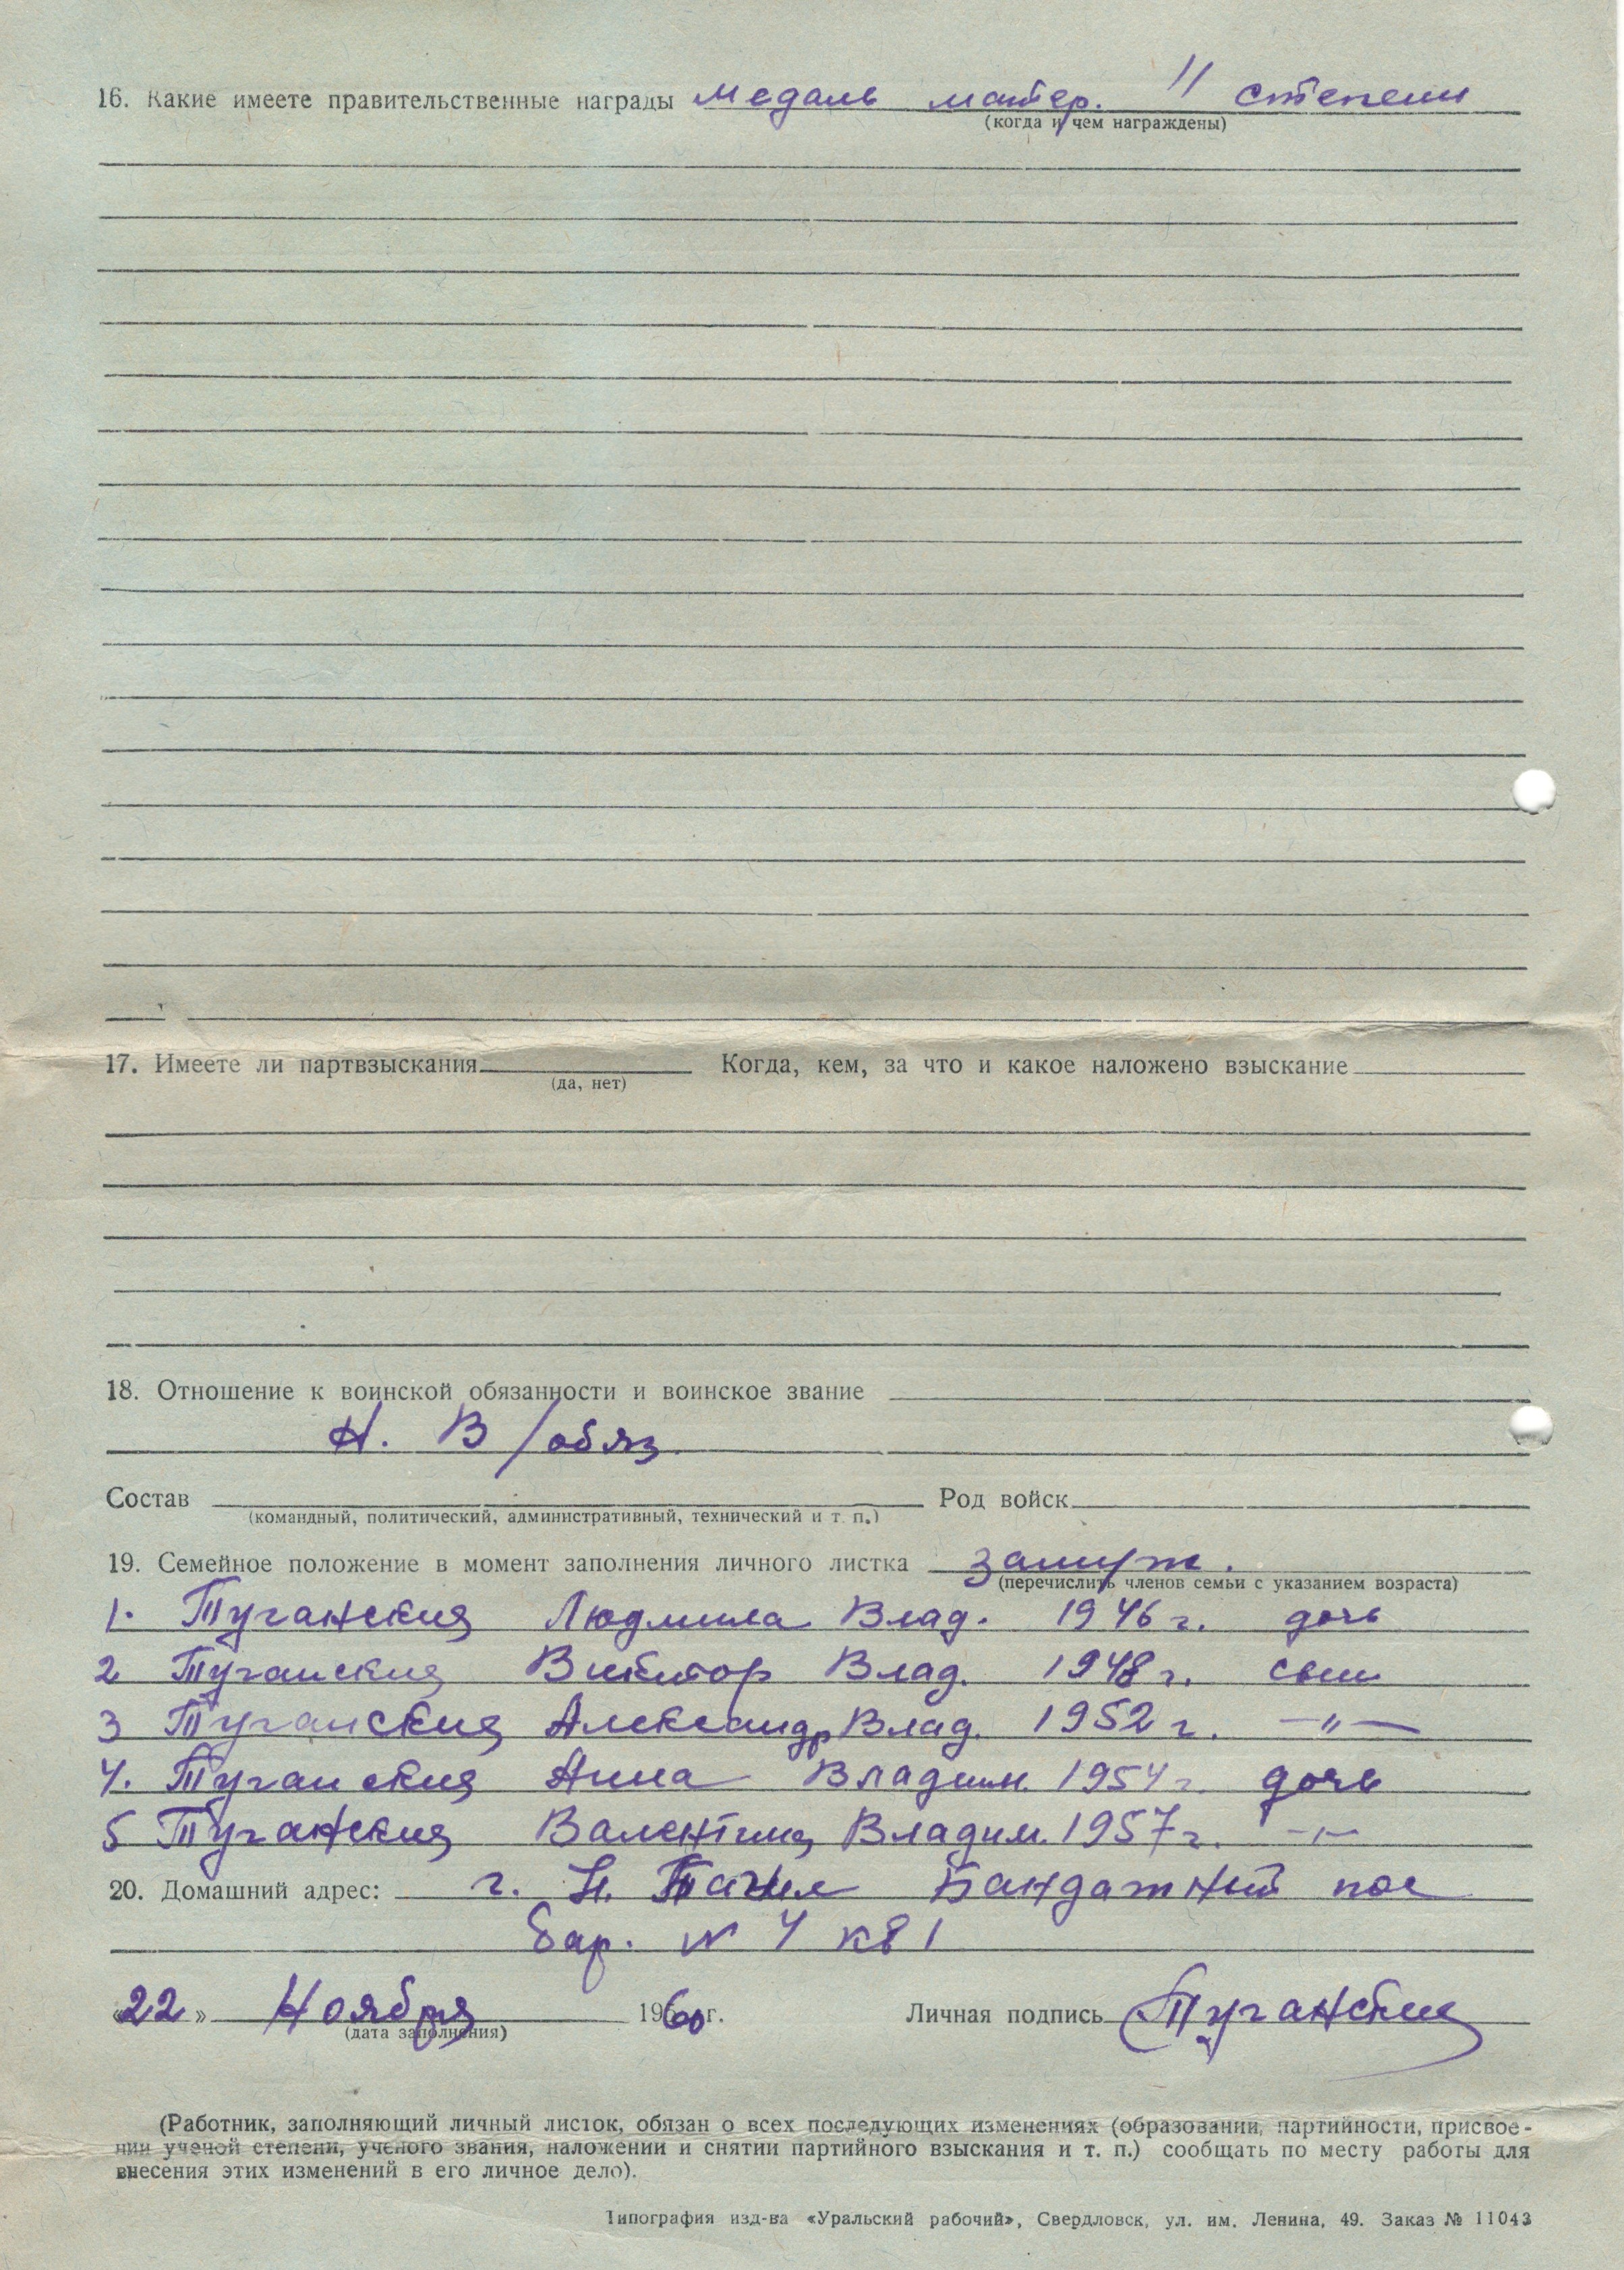 16. Какие имеете правительственные награды Медаль матер. II степени
(когда и чем награждены)
17. Имеете ли партвзыскания Когда, кем, за что и какое наложено взыскание
(да, нет)
18. Отношение к воинской обязанности и воинское звание
Н. В/обяз.
Состав Род войск
(командный, политический, административный, технический и т. п.)
19. Семейное положение в момент заполнения личного листка замуж.
(перечислить членов семьи с указанием возраста)
1. Туганская Людмила Влад. 1946 г. дочь
2 Туганский Виктор Влад. 1948 г. сын
3 Туганский Александр Влад. 1952 г. —"—
4. Туганская Анна Владим. 1954 г. дочь
5 Туганская Валентина Владим. 1957 г. —"—
20. Домашний адрес: г. Н. Тагил Бандажный пос
бар. № 4 кв 1
«22» Ноября 1960 г. Личная подпись Туганская
(дата заполнения)
(Работник, заполняющий личный листок, обязан о всех последующих изменениях (образовании, партийности, присвое-
нии ученой степени, ученого звания, наложении и снятии партийного взыскания и т. п.) сообщать по месту работы для
внесения этих изменений в его личное дело).
Типография изд-ва «Уральский рабочий», Свердловск, ул. им. Ленина, 49. Заказ № 11043